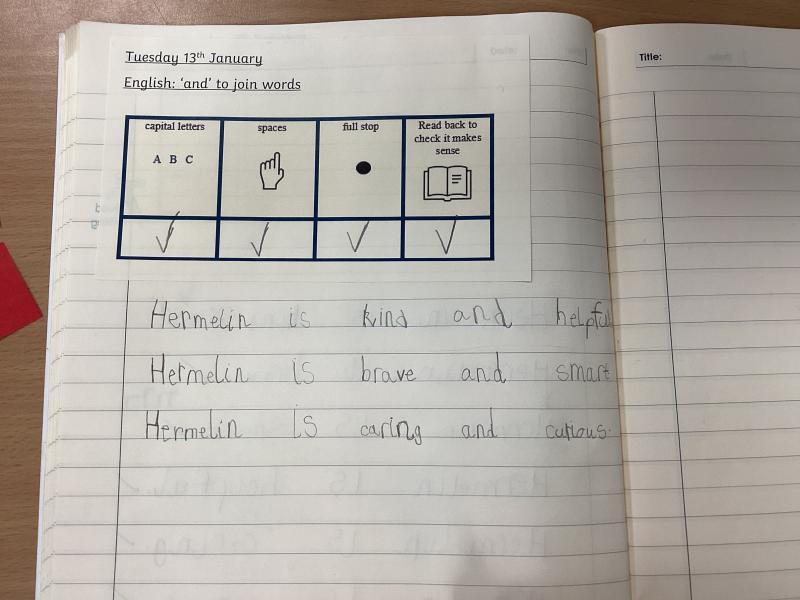 Tuesday 13th January
English: 'and' to join words
capital letters
A B C
spaces
full stop
Read back to
check it makes
sense
Title:
Hermelin is kind and helpful
Hermelin is brave and smart
Hermelin is caring and curious.